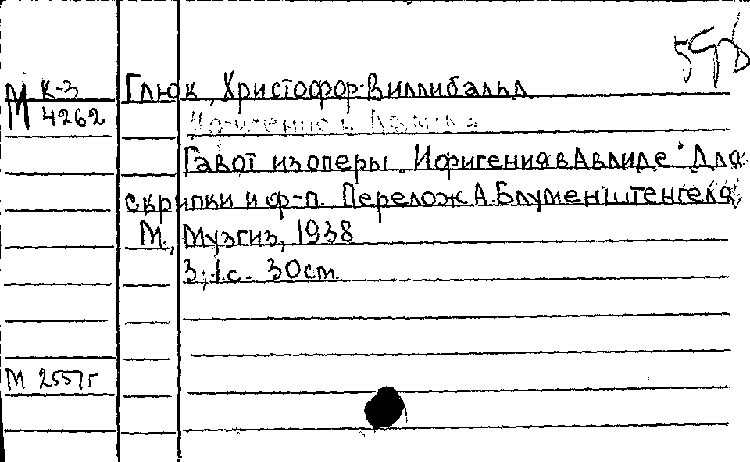 М К-3
4262
Глюк, Христофор-Виллибальд
Гавот из оперы „Ифигения в Авлиде" Для
скрипки и ф-п. Перелож. А. Блуменштенгеля
М., Музгиз, 1938
3; 1с. 30cm
М 2557г